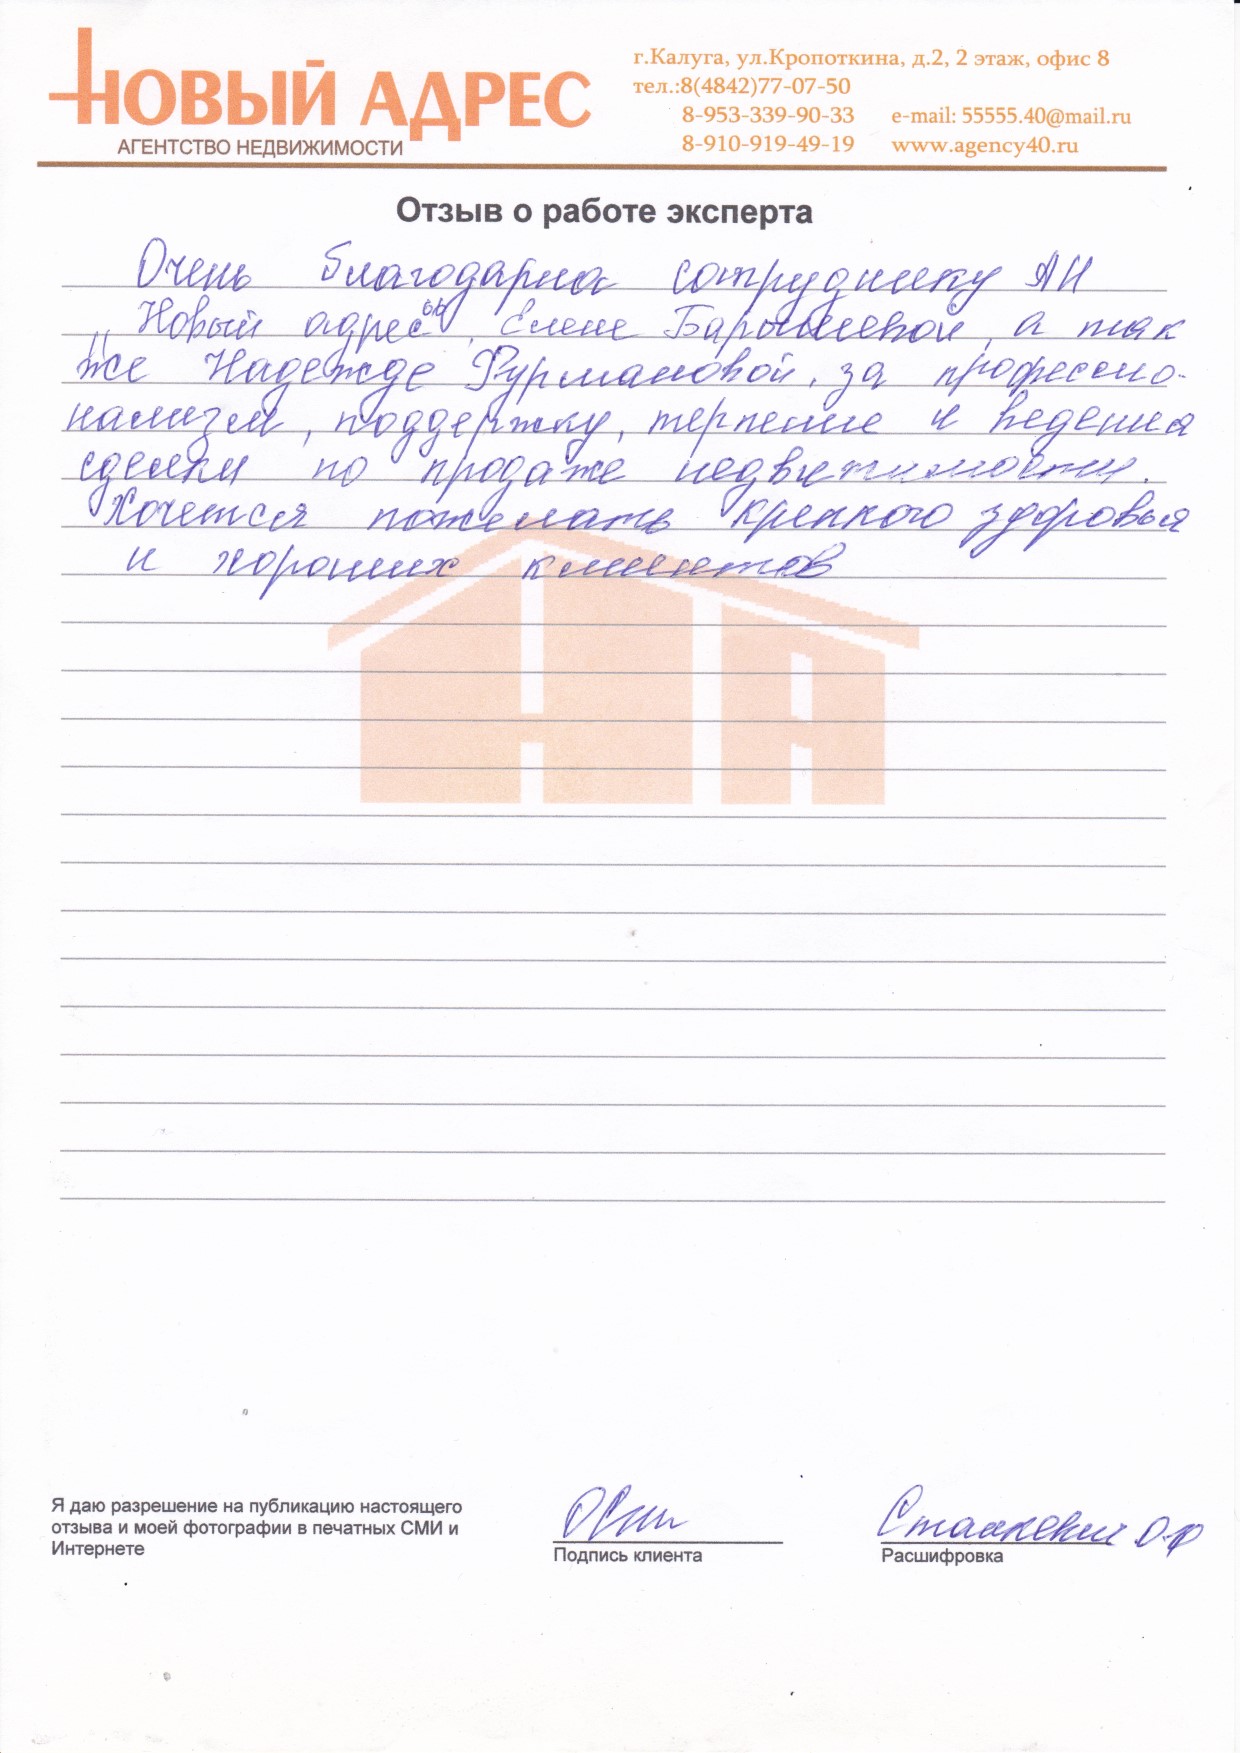 НОВЫЙ АДРЕС
АГЕНТСТВО НЕДВИЖИМОСТИ
г.Калуга, ул.Кропоткина, д.2, 2 этаж, офис 8
тел.:8(4842)77-07-50
8-953-339-90-33 e-mail: 55555.40@mail.ru
8-910-919-49-19 www.agency40.ru
Отзыв о работе эксперта
Очень благодарна сотруднику АН
„Новый адрес", Елене Барышевой, а так
же Надежде Фурмановой, за профессио-
нализм, поддержку, терпение и ведения
сделки по продаже недвижимости.
Хочется пожелать крепкого здоровья
и хороших клиентов
НА
Я даю разрешение на публикацию настоящего
отзыва и моей фотографии в печатных СМИ и
Интернете
Подпись клиента
О.Ф
Расшифровка